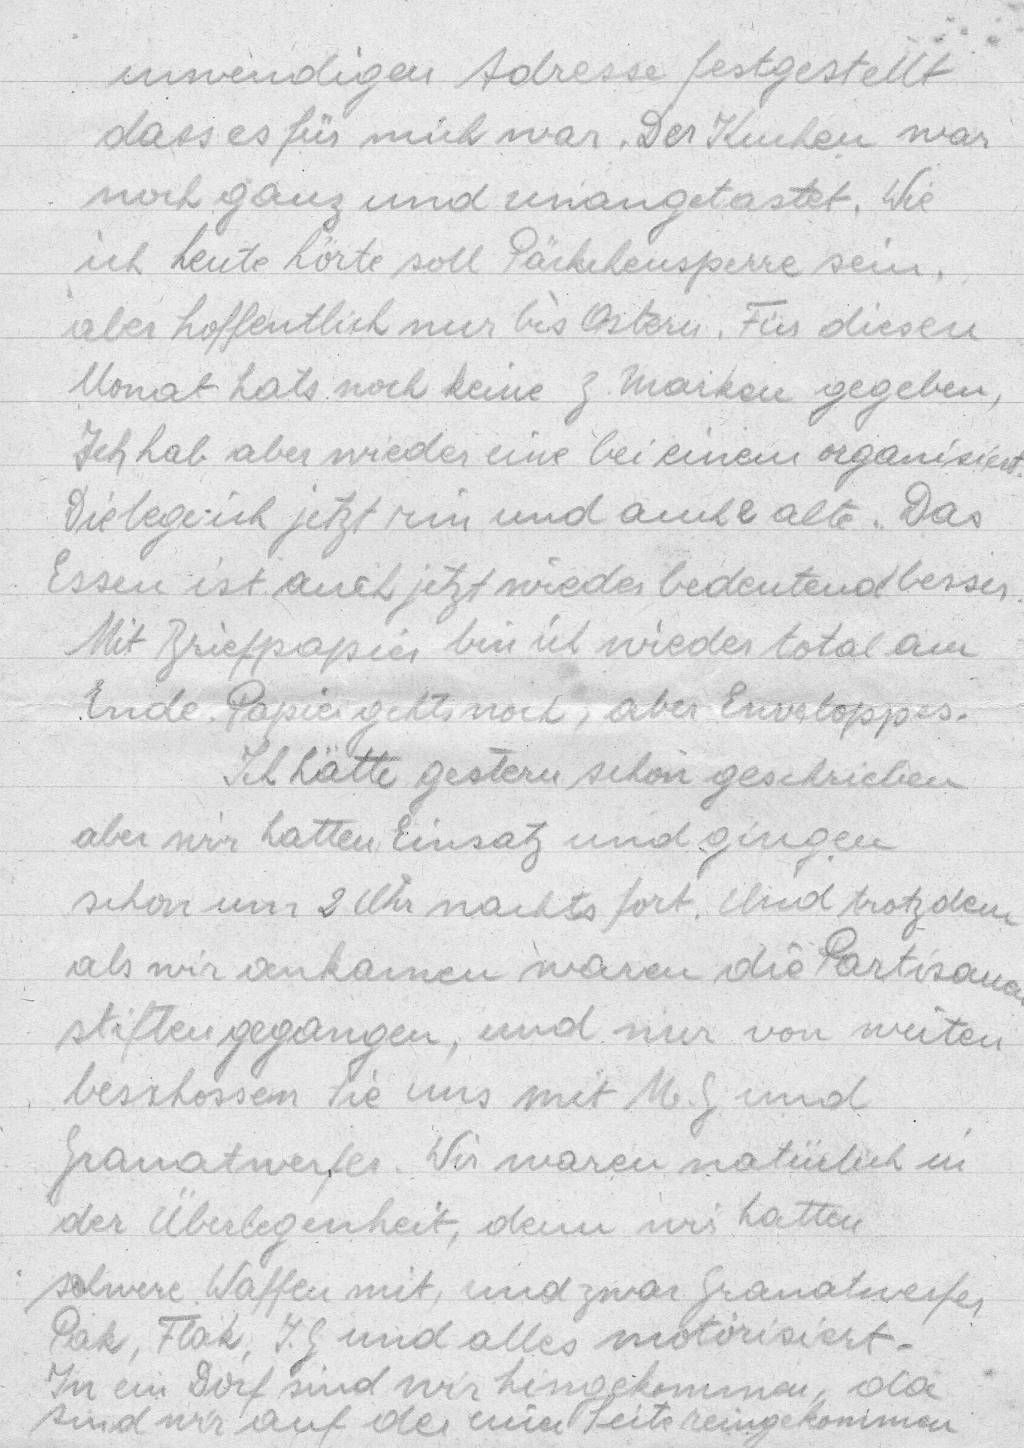 inwendigen Adresse festgestellt
dass es für mich war. Der Kuchen war
noch ganz und unangetastet. Wie
ich heute hörte soll Päckchensperre sein,
aber hoffentlich nur bis Ostern. Für diesen
Monat hats noch keine Z. Marken gegeben,
Ich hab aber wieder eine bei einem organisiert.
Die lege ich jetzt rin und auch 2 alte. Das
Essen ist auch jetzt wieder bedeutend besser.
Mit Briefpapier bin ich wieder total am
Ende. Papier gehts noch, aber Enveloppes.
Ich hätte gestern schon geschrieben
aber wir hatten Einsatz und gingen
schon um 2 Uhr nachts fort. Und trotzdem
als wir ankamen waren die Partisanen
stiften gegangen, und nur von weiten
beschossen sie uns mit M.G und
Granatwerfer. Wir waren natürlich in
der Überlegenheit, denn wir hatten
schwere Waffen mit, und zwar Granatwerfer,
Pak, Flak, I.G und alles motorisiert.
In ein Dorf sind wir hingekommen, da
sind wir auf der einen Seite reingekommen